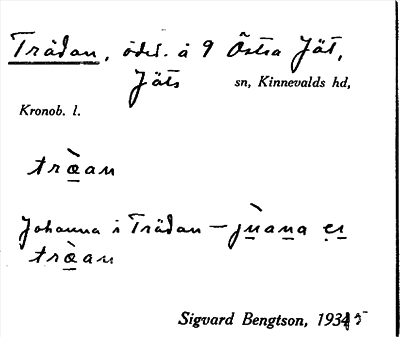 Trädan, ödel. å 9 Östra Jät,
Jäts sn, Kinnevalds hd,
Kronob. l.
træ̀an
Johanna i Trädan – jṳ̀ana e̤ṳ
træ̀an
Sigvard Bengtson, 1935